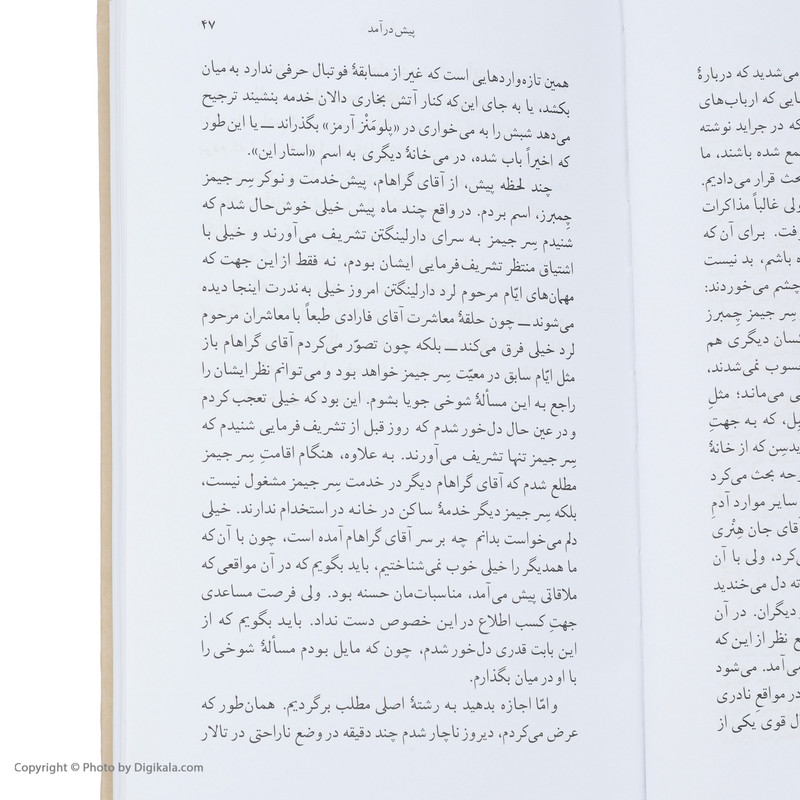 پیش‌درآمد
۴۷
همین تازه‌واردهایی است که غیر از مسابقهٔ فوتبال حرفی ندارد به میان
بکشد، یا به جای این‌که کنار آتش بخاری دالان خدمه بنشیند ترجیح
می‌دهد شبش را به می‌خواری در «پلومَنْز آرمز» بگذراند ــ یا این طور
که اخیراً باب شده، در می‌خانهٔ دیگری به اسم «استار این».
چند لحظه پیش، از آقای گراهام، پیش‌خدمت و نوکر سِر جیمز
چِمبرز، اسم بردم. در واقع چند ماه پیش خیلی خوش‌حال شدم که
شنیدم سِر جیمز به سرای دارلینگتن تشریف می‌آورند و خیلی با
اشتیاق منتظر تشریف‌فرمایی ایشان بودم، نه فقط از این جهت که
مهمان‌های ایّام مرحوم لرد دارلینگتن امروز خیلی به‌ندرت اینجا دیده
می‌شوند ــ چون حلقهٔ معاشرت آقای فارادی طبعاً با معاشران مرحوم
لرد خیلی فرق می‌کند ــ بلکه چون تصوّر می‌کردم آقای گراهام باز
مثل ایّام سابق در معیّت سِر جیمز خواهد بود و می‌توانم نظر ایشان را
راجع به این مسألهٔ شوخی جویا بشوم. این بود که خیلی تعجب کردم
و در عین حال دل‌خور شدم که روز قبل از تشریف فرمایی شنیدم که
سِر جیمز تنها تشریف می‌آورند. به علاوه، هنگام اقامتِ سِر جیمز
مطلع شدم که آقای گراهام دیگر در خدمت سِر جیمز مشغول نیست،
بلکه سِر جیمز دیگر خدمهٔ ساکن در خانه در استخدام ندارند. خیلی
دلم می‌خواست بدانم چه بر سر آقای گراهام آمده است، چون با آن‌که
ما همدیگر را خیلی خوب نمی‌شناختیم، باید بگویم که در آن مواقعی که
ملاقاتی پیش می‌آمد، مناسبات‌مان حسنه بود. ولی فرصت مساعدی
جهتِ کسب اطلاع در این خصوص دست نداد. باید بگویم که از
این بابت قدری دل‌خور شدم، چون که مایل بودم مسألهٔ شوخی را
با او در میان بگذارم.
و امّا اجازه بدهید به رشتهٔ اصلی مطلب برگردیم. همان‌طور که
عرض می‌کردم، دیروز ناچار شدم چند دقیقه در وضع ناراحتی در تالار
می‌شدید که دربارهٔ
ایی که ارباب‌های
که در جراید نوشته
مع شده باشند، ما
حث قرار می‌دادیم.
ولی غالباً مذاکرات
فت. برای آن که
ه باشم، بد نیست
چشم می‌خوردند:
سِر جیمز چِمبرز
کسان دیگری هم
حسوب نمی‌شدند،
ی می‌ماند؛ مثلِ
یل، که به جهتِ
یدسِن که از خانهٔ
وحه بحث می‌کرد
سایر موارد آدمِ
قای جان هِنْری
ی‌کرد، ولی با آن
ته دل می‌خندید
دیگران. در آن
ع نظر از این که
ی‌آمد. می‌شود
در مواقع نادری
ل قوی یکی از
Copyright © Photo by Digikala.com